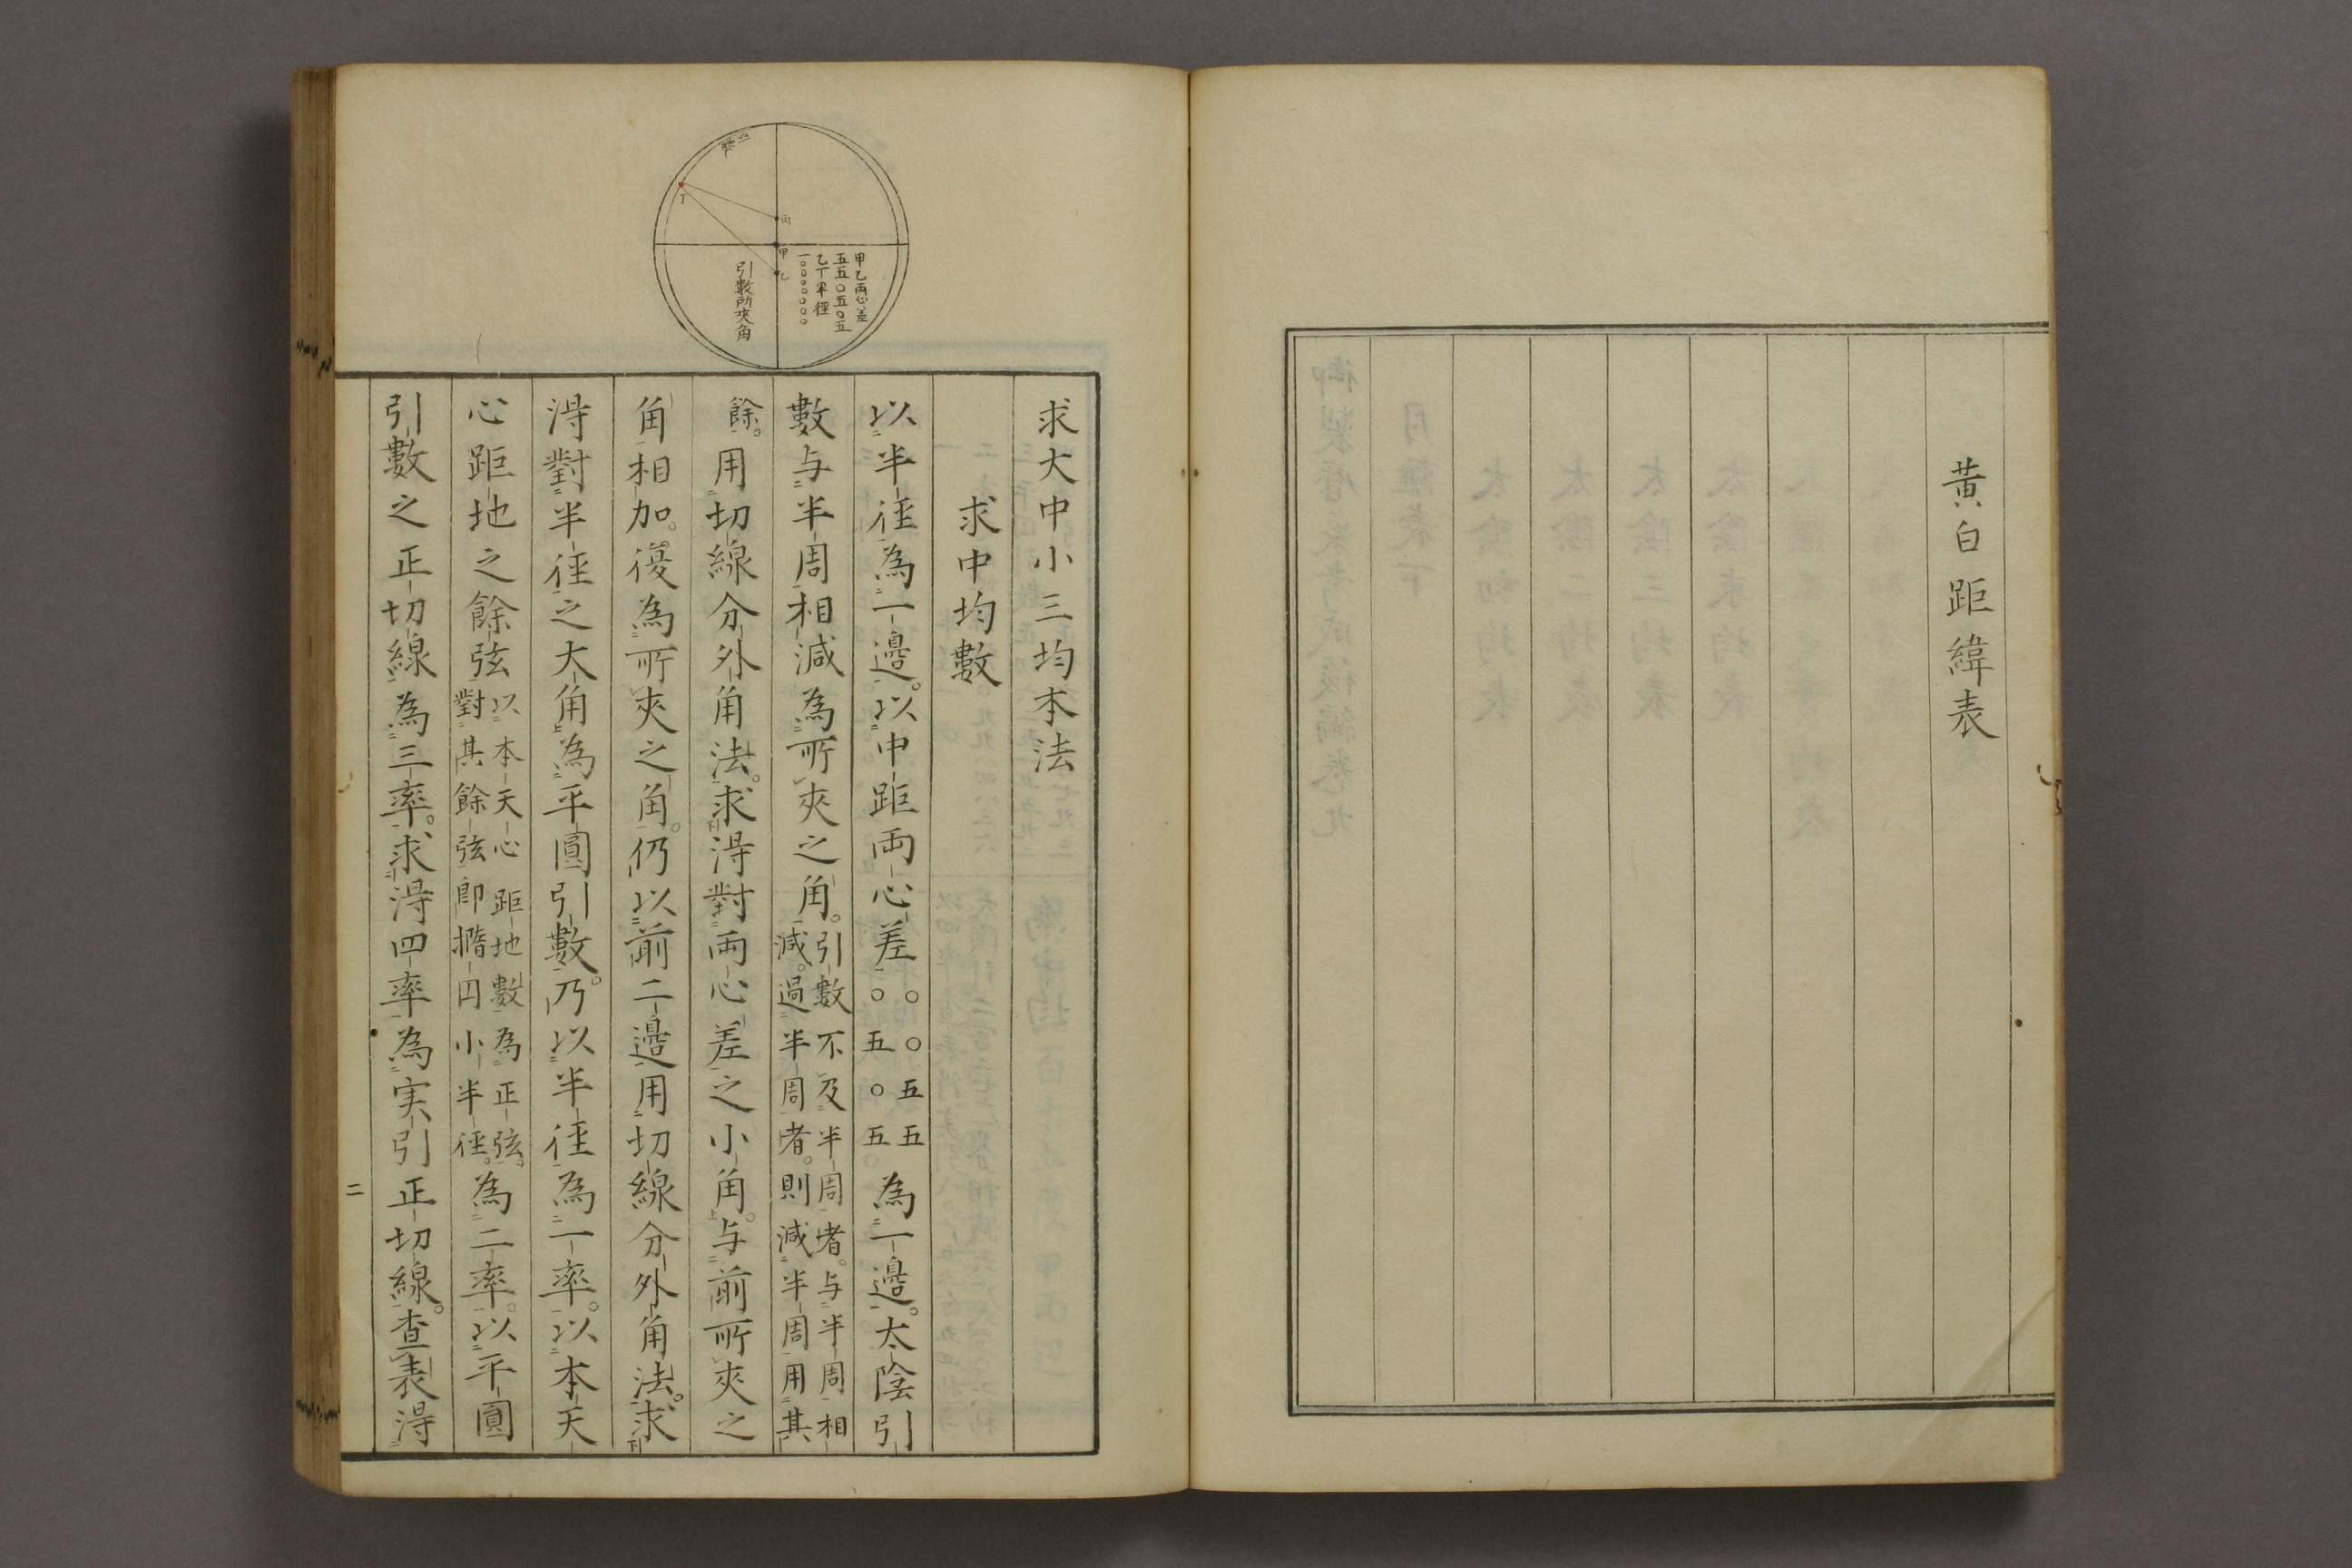 黄白距緯表
求大中小三均本法
求中均數
以半徑為一邊。以中距両心差〇〇五五〇五〇五為一邊。太陰引
數与半周相減為所夾之角。引數不及半周者。与半周相減。過半周者。則減半周用其
餘。用切線分外角法。求得對両心差之小角。与前所夾之
角相加。復為所夾之角。仍以前二邊用切線分外角法。求
得對半徑之大角為平圓引數。乃以半徑為一率。以本天
心距地之餘弦以本天心距地數為正弦。對其餘弦即橢円小半徑。為二率。以平圓
引數之正切線為三率。求得四率為実引正切線。查表得
二
甲乙両心差
五五〇五〇五
乙丁半徑
一〇〇〇〇〇〇〇
引數所夾角
丙
甲
乙
丁